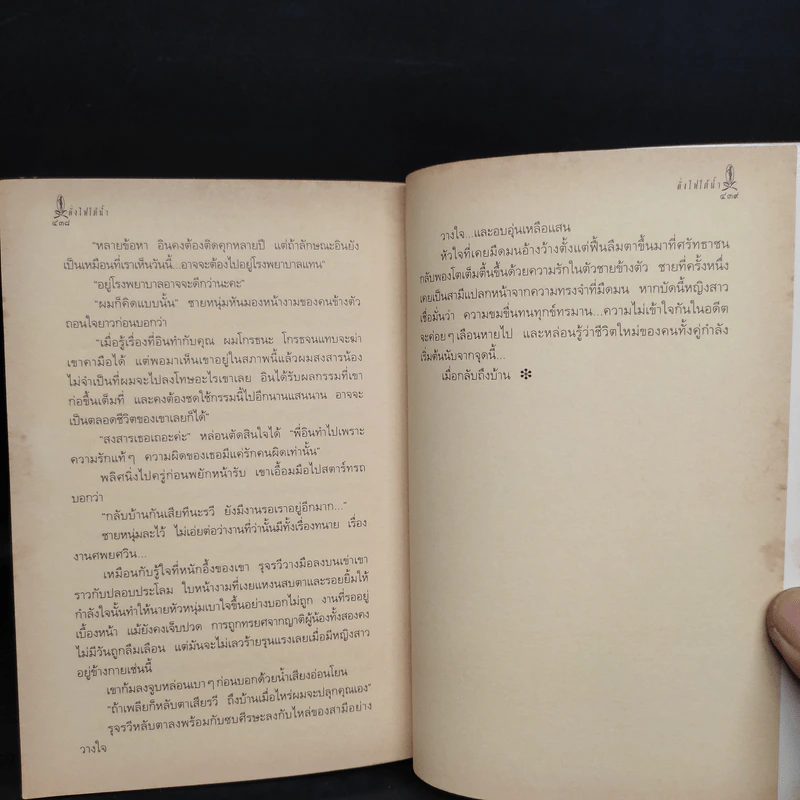 ดั่งไฟใต้น้ำ
๔๓๘
"หลายข้อหา อินคงต้องติดคุกหลายปี แต่ถ้าลักษณะอินยัง
เป็นเหมือนที่เราเห็นวันนี้...อาจจะต้องไปอยู่โรงพยาบาลแทน"
"อยู่โรงพยาบาลอาจจะดีกว่านะคะ"
"ผมก็คิดแบบนั้น" ชายหนุ่มหันมองหน้างามของคนข้างตัว
ถอนใจยาวก่อนบอกว่า
"เมื่อรู้เรื่องที่อินทำกับคุณ ผมโกรธนะ โกรธจนแทบจะฆ่า
เขาคามือได้ แต่พอมาเห็นเขาอยู่ในสภาพนี้แล้วผมสงสารน้อง
ไม่จำเป็นที่ผมจะไปลงโทษอะไรเขาเลย อินได้รับผลกรรมที่เขา
ก่อขึ้นเต็มที่ และคงต้องชดใช้กรรมนี้ไปอีกนานแสนนาน อาจจะ
เป็นตลอดชีวิตของเขาเลยก็ได้"
"สงสารเธอเถอะค่ะ" หล่อนตัดสินใจได้ "พี่อินทำไปเพราะ
ความรักแท้ๆ ความผิดของเธอมีแค่รักคนผิดเท่านั้น"
พลิศนิ่งไปครู่ก่อนพยักหน้ารับ เขาเอื้อมมือไปสตาร์ทรถ
บอกว่า
"กลับบ้านกันเสียทีนะรวี ยังมีงานรอเราอยู่อีกมาก..."
ชายหนุ่มละไว้ ไม่เอ่ยต่อว่างานที่ว่านั้นมีทั้งเรื่องทนาย เรื่อง
งานศพยศวิน...
เหมือนกับรู้ใจที่หนักอึ้งของเขา รุจรวีวางมือลงบนเข่าเขา
ราวกับปลอบประโลม ใบหน้างามที่เงยแหงนสบตาและรอยยิ้มให้
กำลังใจนั้นทำให้นายหัวหนุ่มเบาใจขึ้นอย่างบอกไม่ถูก งานที่รออยู่
เบื้องหน้า แม้ยังคงเจ็บปวด การถูกทรยศจากญาติผู้น้องทั้งสองคง
ไม่มีวันถูกลืมเลือน แต่มันจะไม่เลวร้ายรุนแรงเลยเมื่อมีหญิงสาว
อยู่ข้างกายเช่นนี้
เขาก้มลงจูบหล่อนเบาๆ ก่อนบอกด้วยน้ำเสียงอ่อนโยน
"ถ้าเพลียก็หลับตาเสียรวี ถึงบ้านเมื่อไหร่ผมจะปลุกคุณเอง"
รุจรวีหลับตาลงพร้อมกับซบศีรษะลงกับไหล่ของสามีอย่าง
วางใจ
ดั่งไฟใต้น้ำ
๔๓๙
วางใจ...และอบอุ่นเหลือแสน
หัวใจที่เคยมืดมนอ้างว้างตั้งแต่ฟื้นลืมตาขึ้นมาที่ศรัทธาชน
กลับพองโตเต็มตื้นขึ้นด้วยความรักในตัวชายข้างตัว ชายที่ครั้งหนึ่ง
เคยเป็นสามีแปลกหน้าจากความทรงจำที่มืดมน หากบัดนี้หญิงสาว
เชื่อมั่นว่า ความขมขื่นทนทุกข์ทรมาน...ความไม่เข้าใจกันในอดีต
จะค่อยๆ เลือนหายไป และหล่อนรู้ว่าชีวิตใหม่ของคนทั้งคู่กำลัง
เริ่มต้นนับจากจุดนี้...
เมื่อกลับถึงบ้าน ✻